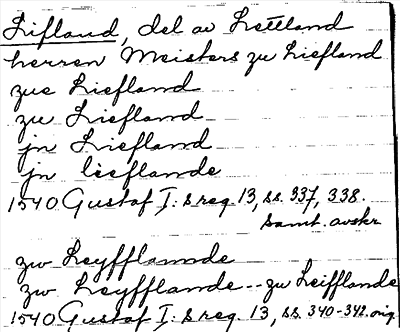 Lifland, del av Lettland
herren Meisters zu Liefland
zue Liefland
zu Liefland
jn Liefland
jn lieflande
1540 Gustaf I: s reg. 13, ss. 337, 338.
samt. avskr.
zw Leyfflannde
zw Leyfflande -- zu Leifflande
1540 Gustaf I: s reg. 13, ss. 340-342. orig.